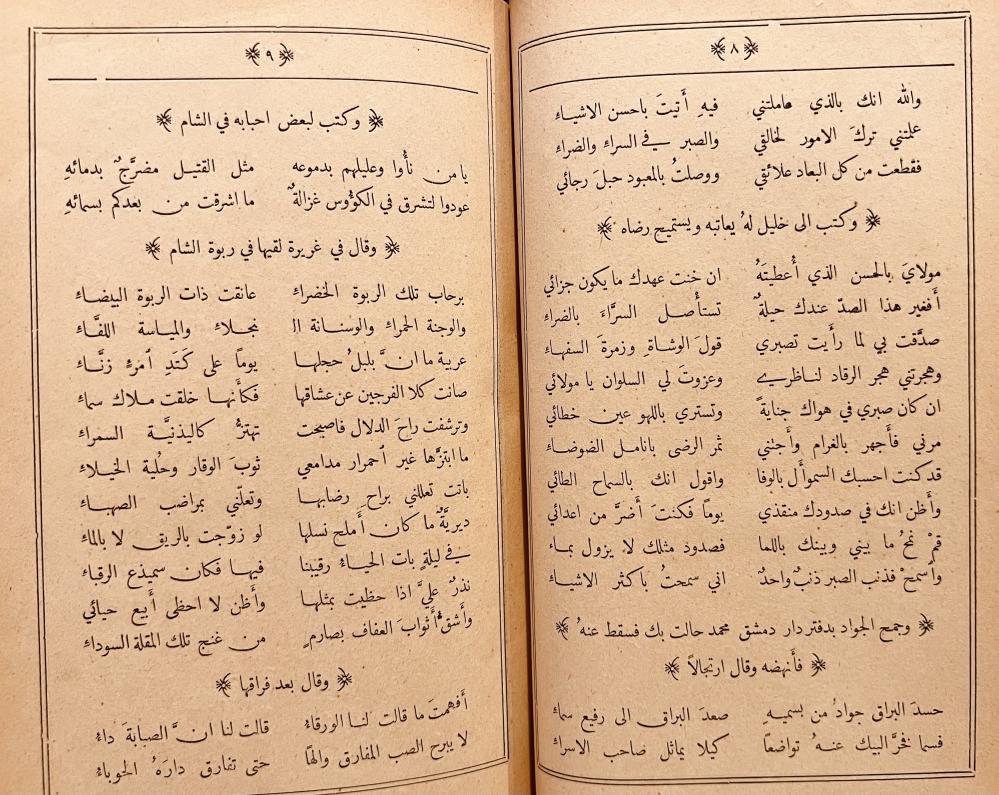 ٨
والله انك بالذي عاملتني فيهِ أَتيتَ باحسن الاشياء
علمتني تركَ الامور لخالقي والصبر في السراء والضراء
فقطعت من كل البعاد علائقي ووصلتُ بالمعبود حبلَ رجائي
وكتب الى خليل لهُ يعاتبه ويستميح رضاه
مولايَ بالحسن الذي أُعطيتَهُ ان خنت عهدك ما يكون جزائي
أَفغير هذا الصدّ عندك حيلةٌ تستأصل السرَّاءَ بالضراء
صدَّقت بي لما رأَيت تصبري قولَ الوشاةِ وزمرةَ السفهاء
وهجرتني هجر الرقاد لناظري وعزوتَ لي السلوان يا مولائي
ان كان صبري في هواك جنايةً وتستري باللهو عين خطائي
مرني فأَجهر بالغرام وأَجتني ثمر الرضى بانامل الضوضاء
قد كنت احسبك السموأَل بالوفا واقول انك بالسماح الطائي
وأَظن انك في صدودك منقذي يوماً فكنتَ أَضرَّ من اعدائي
قمْ نمحُ ما بيني وبينك باللما فصدود مثلك لا يزول بماء
وٱسمحْ فذنب الصبر ذنبٌ واحدٌ اني سمحتُ باكثر الاشياء
وجمح الجواد بدفتردار دمشق محمد حالت بك فسقط عنهُ
فأَنهضه وقال ارتجالاً
حسدَ البراق جوادُ من بسميهِ صعدَ البراق الى رفيع سماء
فسما فخرَّ اليك عنهُ تواضعاً كيلا يماثل صاحب الاسراء
٩
وكتب لبعض احبابه في الشام
يا من نأَوا وعليلهم بدموعه مثل القتيل مضرَّجٌ بدمائهِ
عودوا لتشرق في الكؤوس غزالةٌ ما اشرقت من بعدكم بسمائهِ
وقال في غريرة لقيها في ربوة الشام
برحاب تلك الربوة الخضراء عانقت ذات الربوة البيضاء
والوجنة الحمراء والوسنانة ال نجلاء والمياسة اللفَّاء
عربية ما انَّ بلبلُ حجلها يوماً على كَتَدِ ٱمرءٍ زنَّاء
صانت كلا الفرجين عن عشاقها فكأَنها خلقت ملاك سماء
وترشفت راحَ الدلال فاصبحت تهتزُّ كاليذنيَّة السمراء
ما ابتزَّها غير ٱحمرار مدامعي ثوبَ الوقار وحلية الخيلاء
باتت تعللني براح رضابها وتعلّني بمراضب الصهباء
ديريَّةٌ ما كان أَملح نسلها لو زوّجت بالريق لا بالماء
في ليلةٍ بات الحياءُ رقيبنا فيها فكان سميذع الرقباء
نذرٌ عليَّ اذا حظيت بمثلها وأَظن لا احظى أَبيع حيائي
وأَشقُّ أَثوابَ العفاف بصارمٍ من غنج تلك المقلة السوداء
وقال بعد فراقها
أَفهمتَ ما قالت لنا الورقاءُ قالت لنا انَّ الصبابةَ داءُ
لا يبرح الصب المفارق والهًا حتى تفارق دارَهُ الحوباءُ